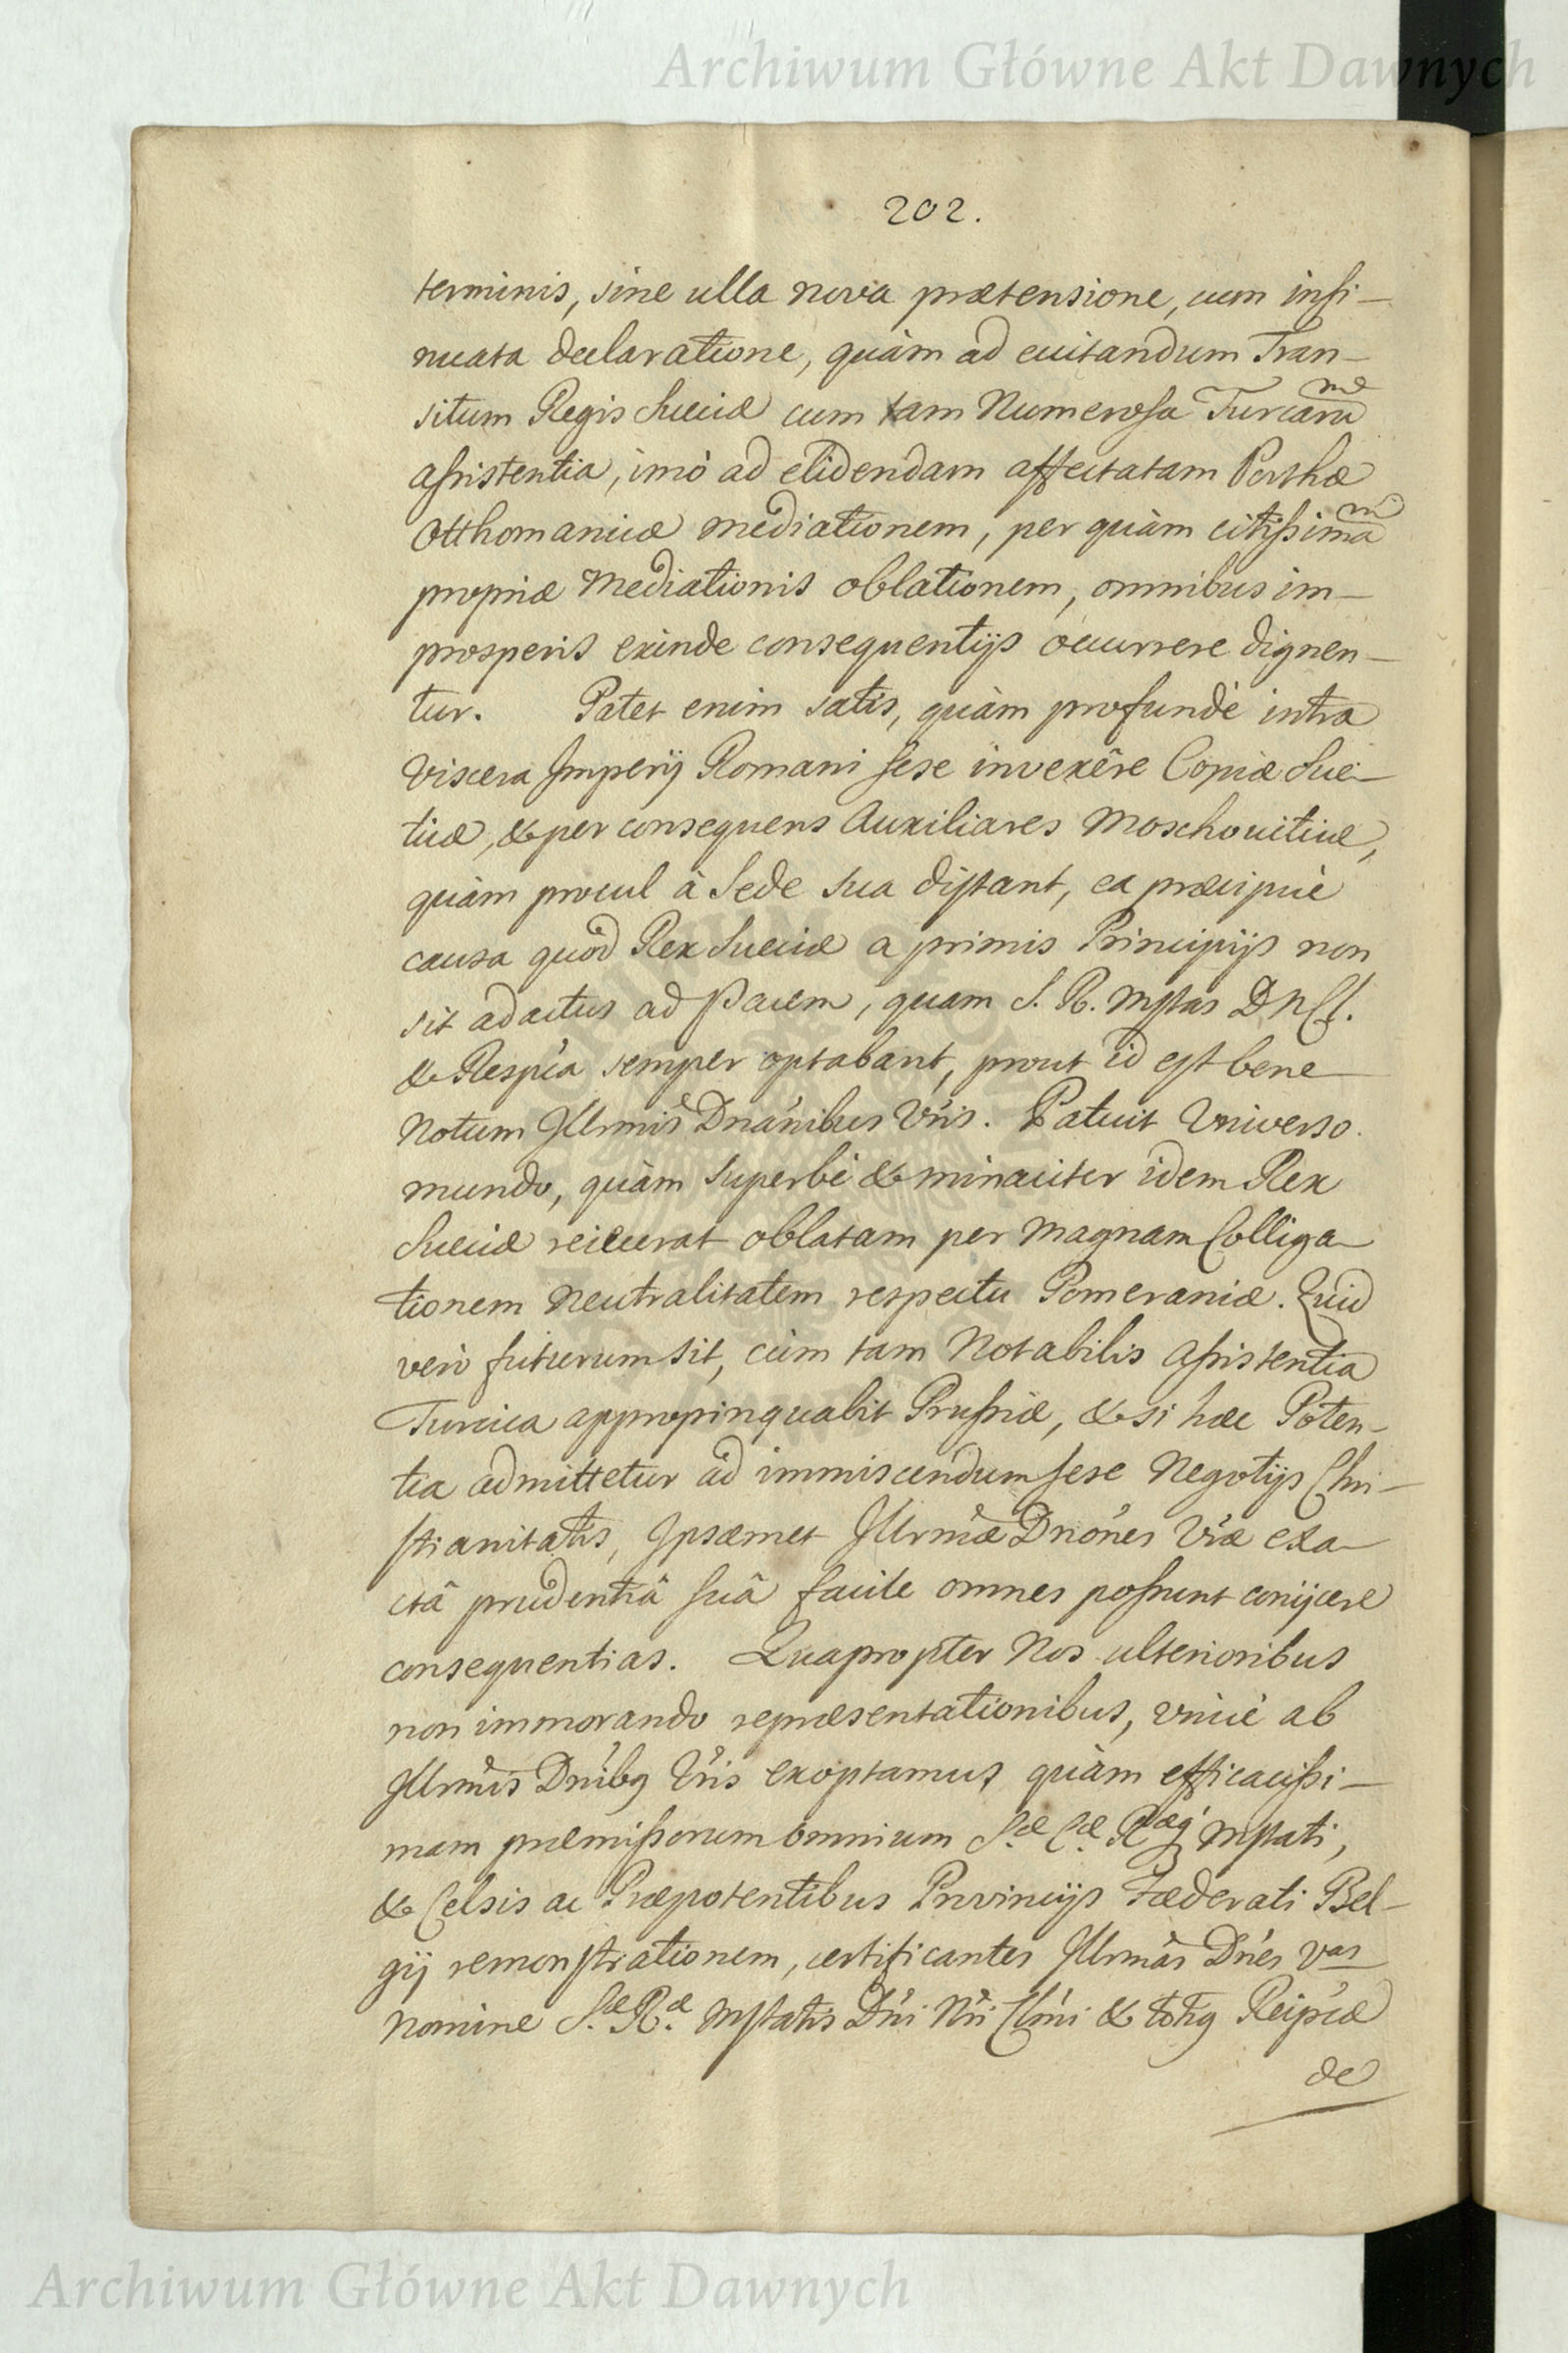 Archiwum Główne Akt Dawnych
202.
terminis, sine ulla nova prætensione, cum insi-
nuata declaratione, quàm ad euitandum Tran-
situm Regis Sueciæ cum tam Numerosa Turcarũ
assistentia, imò ad elidendam affectatam Porthæ
Otthomanicæ mediationem, per quàm citissimã
propriæ Mediationis oblationem, omnibus im-
prosperis exinde consequentijs occurrere dignen-
tur. Patet enim satis, quàm profundè intra
Viscera Imperij Romani sese invexêre Copiæ Sue-
ticæ, & per consequens Auxiliares Moschouiticæ,
quàm procul à Sede sua distant, ea præcipuè
causa quòd Rex Sueciæ a primis Principijs non
sit adactus ad Pacem, quam S. R. Mstas DNCl.
& Respca semper optabant, prout id est bene
Notum Illrmis Dnanibus Vris. Patuit Universo
mundo, quàm superbè & minaciter idem Rex
Sueciæ reiecerat oblatam per Magnam Colliga-
tionem Neutralitatem respectu Pomeraniæ. Quid
verò futurum sit, cùm tam Notabilis Assistentia
Turcica appropinquabit Prussiæ, & si hæc Poten-
tia admittetur ad immiscendum sese Negotijs Chri-
stianitatis, Ipsæmet Illrmæ Dnones Vræ exa-
ctâ prudentiâ suâ facile omnes possunt conijcere
consequentias. Quapropter Nos ulterioribus
non immorando repræsentationibus, vnicè ab
Illrmis Dnibq Vris exoptamus quàm efficacissi-
mam præmissorum omnium S.æ C.æ Ræq Mstati,
& Celsis ac Præpotentibus Provincijs Fæderati Bel-
gij remonstrationem, certificantes Illrmas Dnes Vas
Nomine S.æ R.æ Mstatis Dni Nri Clmi & totiq Reipcæ
de
Archiwum Główne Akt Dawnych